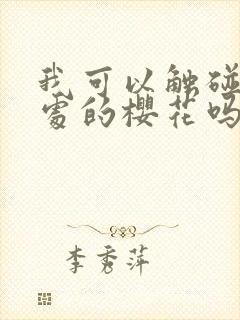 我可以触碰
处的樱花吗
李秀萍